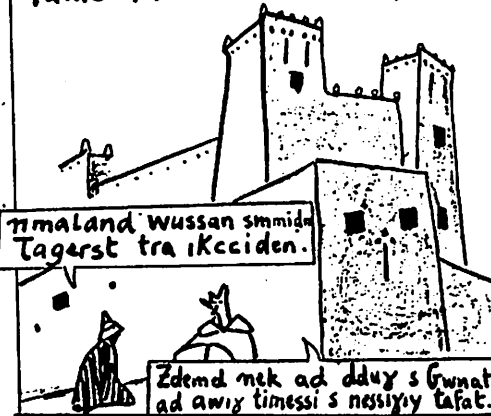 nmaland wussan smmidn
Tagerst tra ikcciden.
Zdemd nek ad dduɣ s Gwnat
ad awiɣ timessi s nessiɣiy tafat.